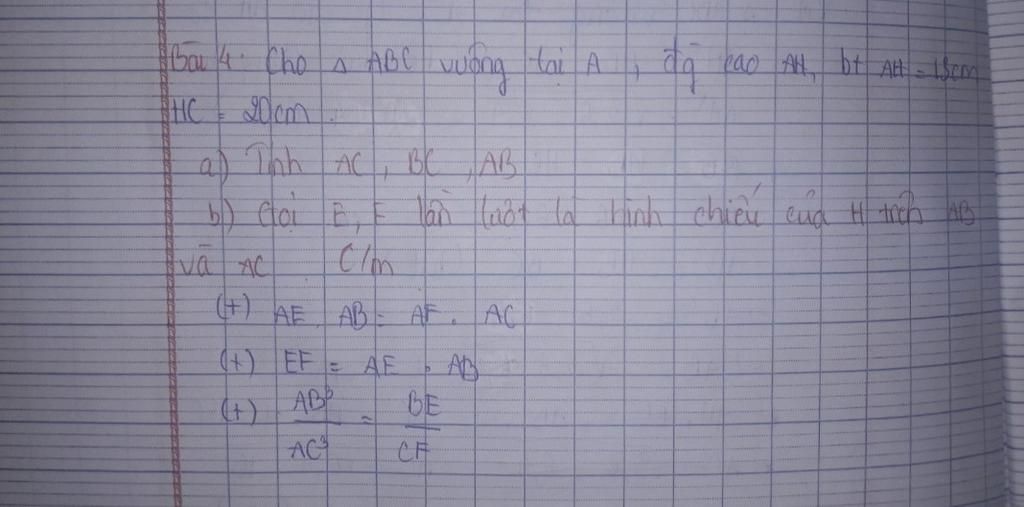 Bài 4: Cho △ ABC vuông tại A, đg cao AH, bt AH = 15cm
HC = 20cm.
a) Tính AC, BC, AB
b) Gọi E, F lần lượt là hình chiếu của H trên AB
và AC C/m
(+) AE. AB = AF. AC
(+) EF = AE . AB
(+) AB³/AC³ = BE/CF